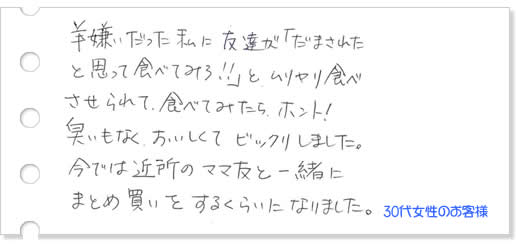 羊嫌いだった私に友達が「だまされた
と思って食べてみろ!!」と、ムリヤリ食べ
させられて、食べてみたら、ホント!
臭いもなく、おいしくてビックリしました。
今では近所のママ友と一緒に
まとめ買いをするくらいになりました。
30代女性のお客様